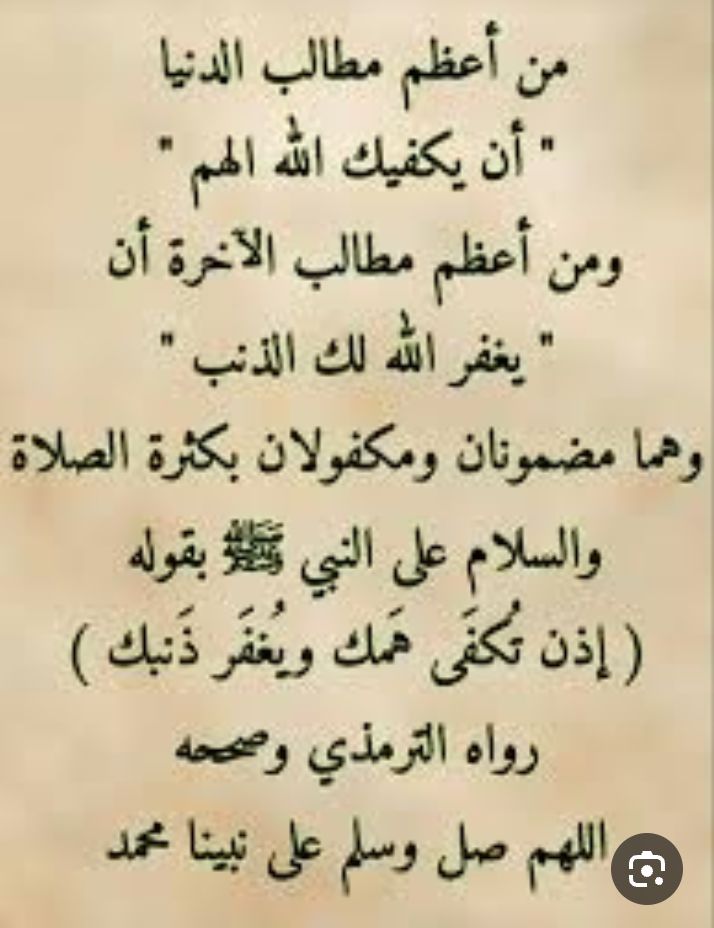 من أعظم مطالب الدنيا
" أن يكفيك الله الهم "
ومن أعظم مطالب الآخرة أن
" يغفر الله لك الذنب "
وهما مضمونان ومكفولان بكثرة الصلاة
والسلام على النبي ﷺ بقوله
( إذن تُكفَى هَمك ويُغفَر ذَنبك )
رواه الترمذي وصححه
اللهم صل وسلم على نبينا محمد